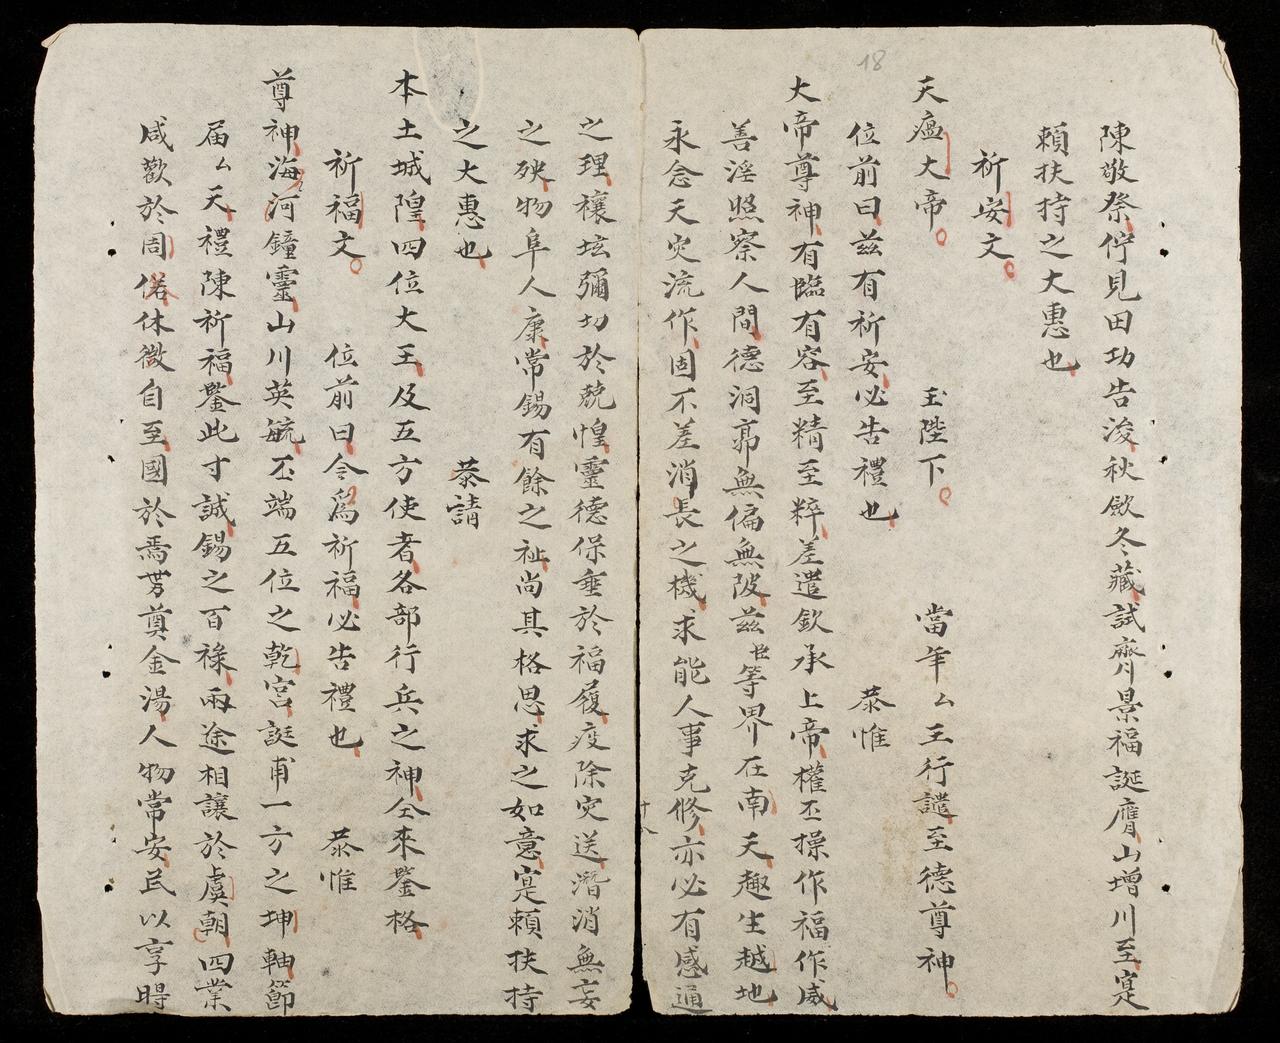 18
陳敬祭佇見田功告浚秋歛冬藏試齊景福誕膺山增川至寔
賴扶持之大惠也
祈安文
天瘟大帝 玉陛下 當年厶王行譴至德尊神
位前曰兹有祈安必告禮也 恭惟
大帝尊神有臨有容至精至粹差遣欽承上帝權丕操作福作威
善淫照察人間德洞郭無偏無陂兹臣等界在南天趣生越地
永念天灾流作固不差消長之機求能人事克修亦必有感通
十八
之理禳垓彌切於兢惶靈德保垂於福履疫除灾送潛消無妄
之殃物阜人康常錫有餘之祉尚其格思求之如意寔賴扶持
之大惠也 恭請
本土城隍四位大王及五方使者各部行兵之神仝來鑒格
祈福文 位前曰今爲祈福必告禮也 恭惟
尊神海河鐘靈山川英毓丕端五位之乾宮誕甫一方之坤軸節
届厶天禮陳祈福鑒此寸誠錫之百祿兩途相讓於虞朝四業
咸歡於周偌休徵自至國於焉奠金湯人物常安民以享時